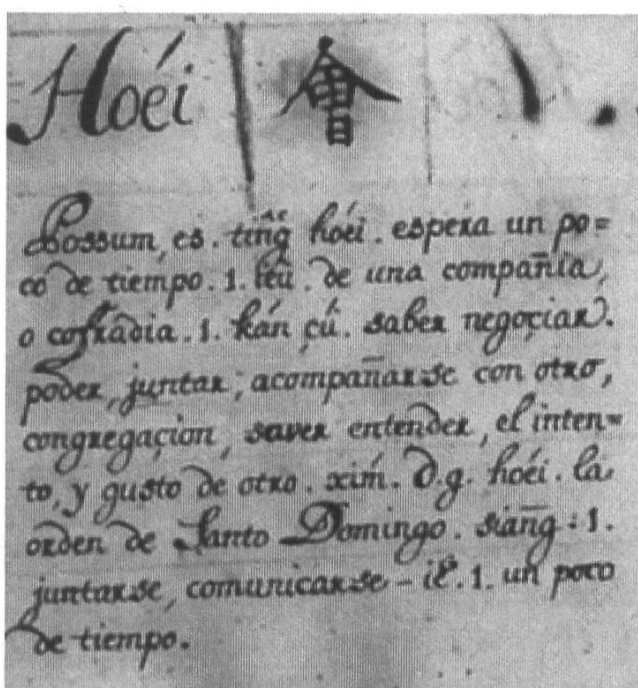 Hoéi 會 1.
Possum, es. tiñg hoéi. espera un po=
co de tiempo. 1. leū. de una compañia,
o cofradia. 1. kán çú. saber negoçiar.
poder, juntar, acompañarse con otro,
congregaçion, saver entender, el inten=
to, y gusto de otro. xim̃. D.g. hoéi. la
orden de Santo Domingo. siañg-1.
juntarse, comunicarse - iĕ. 1. un poco
de tiempo.